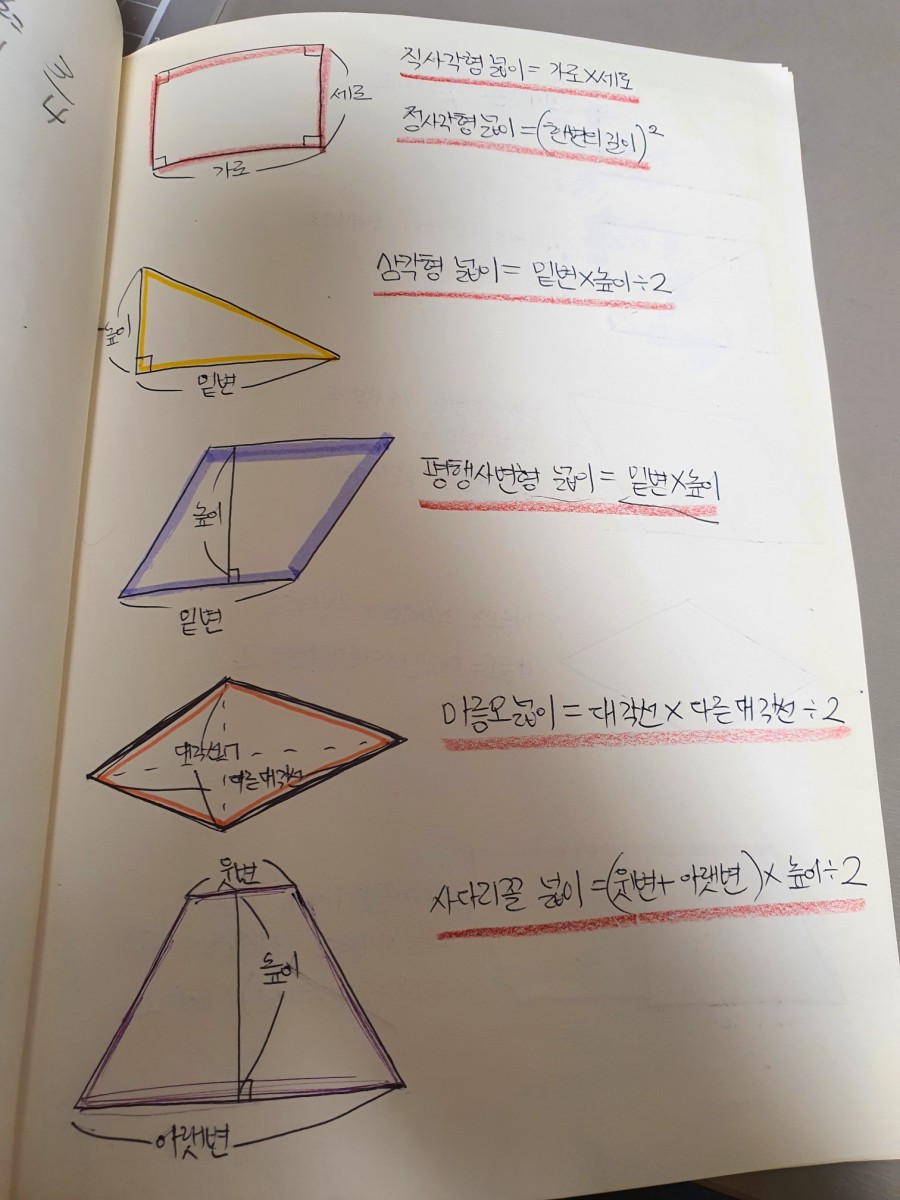 직사각형 넓이 = 가로×세로
세로
정사각형 넓이 = (한변의 길이)²
가로
삼각형 넓이 = 밑변×높이÷2
높이
밑변
평행사변형 넓이 = 밑변×높이
높이
밑변
마름모 넓이 = 대각선 × 다른 대각선 ÷ 2
대각선
다른 대각선
윗변
사다리꼴 넓이 = (윗변 + 아랫변) × 높이 ÷ 2
높이
아랫변